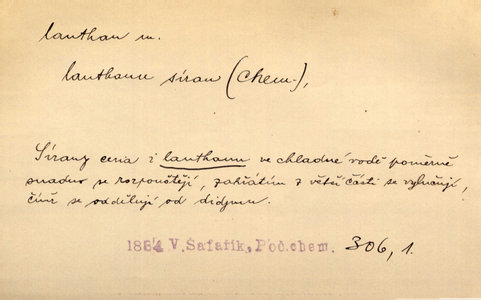 lanthan m.
lanthanu síran (chem.),
Sírany ceria i lanthanu ve chladné vodě poměrně
snadno se rozpouštějí, zahřátím z větší části se vylučují,
čímž se oddělují od didymu.
1864 V. Šafařík, Poč. chem. 306, 1.